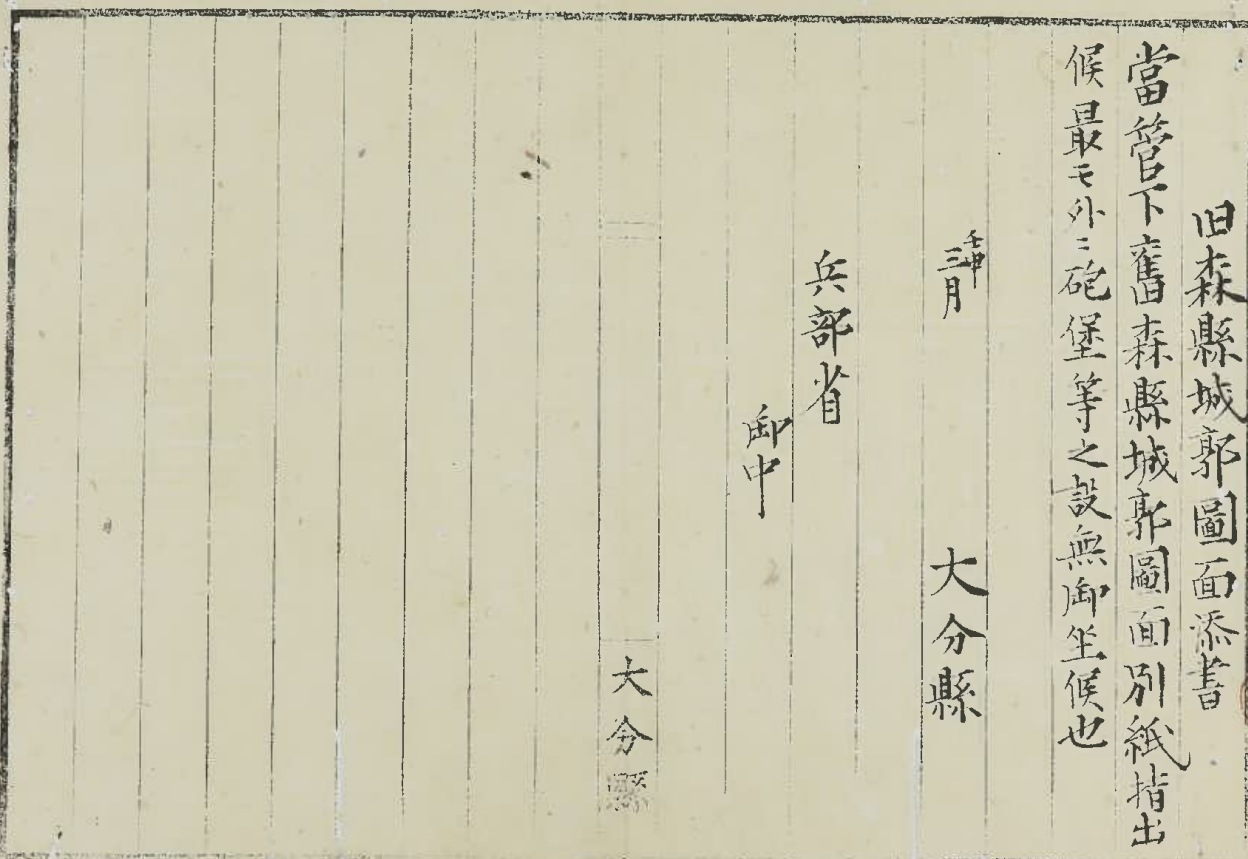 旧森縣城郭圖面添書
當管下舊森縣城郭圖面別紙指出
候最モ外ニ砲堡等之設無御坐候也
壬申
三月
大分縣
兵部省
御中
大分縣